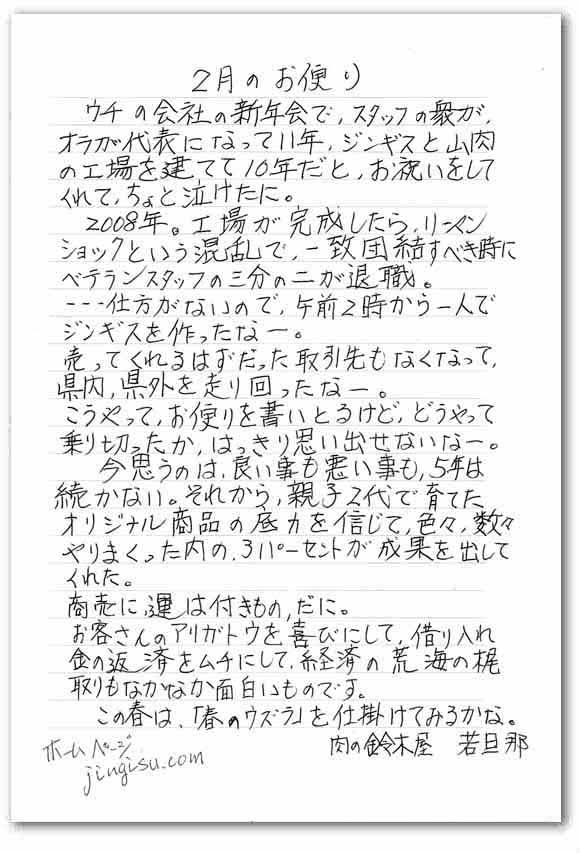 2月のお便り
ウチの会社の新年会で,スタッフの衆が,
オラが代表になって11年,ジンギスと山肉
の工場を建てて10年だと,お祝いをして
くれて,ちょと泣けたに。
2008年。工場が完成したら,リーマン
ショックという混乱で,一致団結すべき時に
ベテランスタッフの三分の二が退職。
---仕方がないので,午前2時から一人で
ジンギスを作ったなー。
売ってくれるはずだった取引先もなくなって,
県内,県外を走り回ったなー。
こうやって,お便りを書いとるけど,どうやって
乗り切ったか,はっきり思い出せないなー。
今思うのは,良い事も悪い事も,5年は
続かない。それから,親子2代で育てた
オリジナル商品の底力を信じて,色々,数々
やりまくった内の,3パーセントが成果を出して
くれた。
商売に運は付きもの,だに。
お客さんのアリガトウを喜びにして,借り入れ
金の返済をムチにして,経済の荒海の梶
取りもなかなか面白いものです。
この春は,「春のウズラ」を仕掛けてみるかな。
肉の鈴木屋 若旦那
ホームページ
jingisu.com